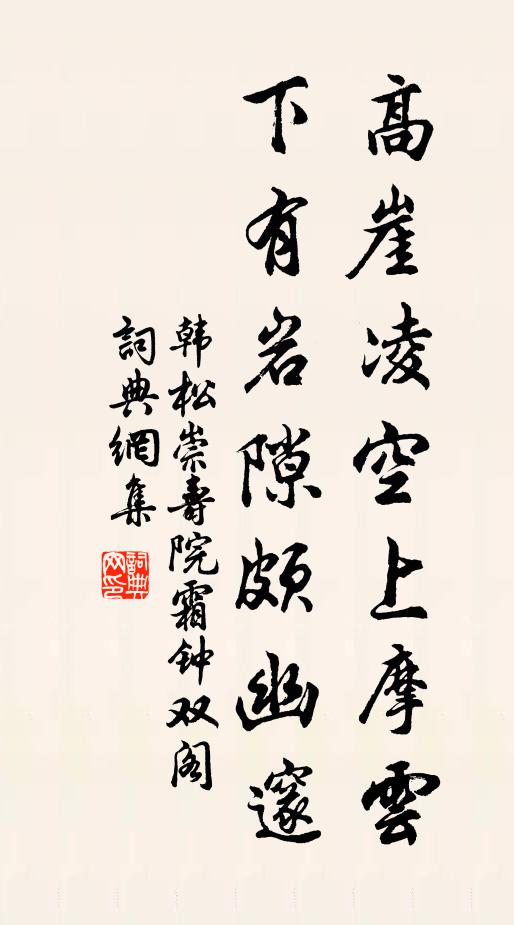 高崖凌空上摩雲
下有岩隙頗幽邃
韩松崇壽院霜钟双阁
詞典網集
詞典网印